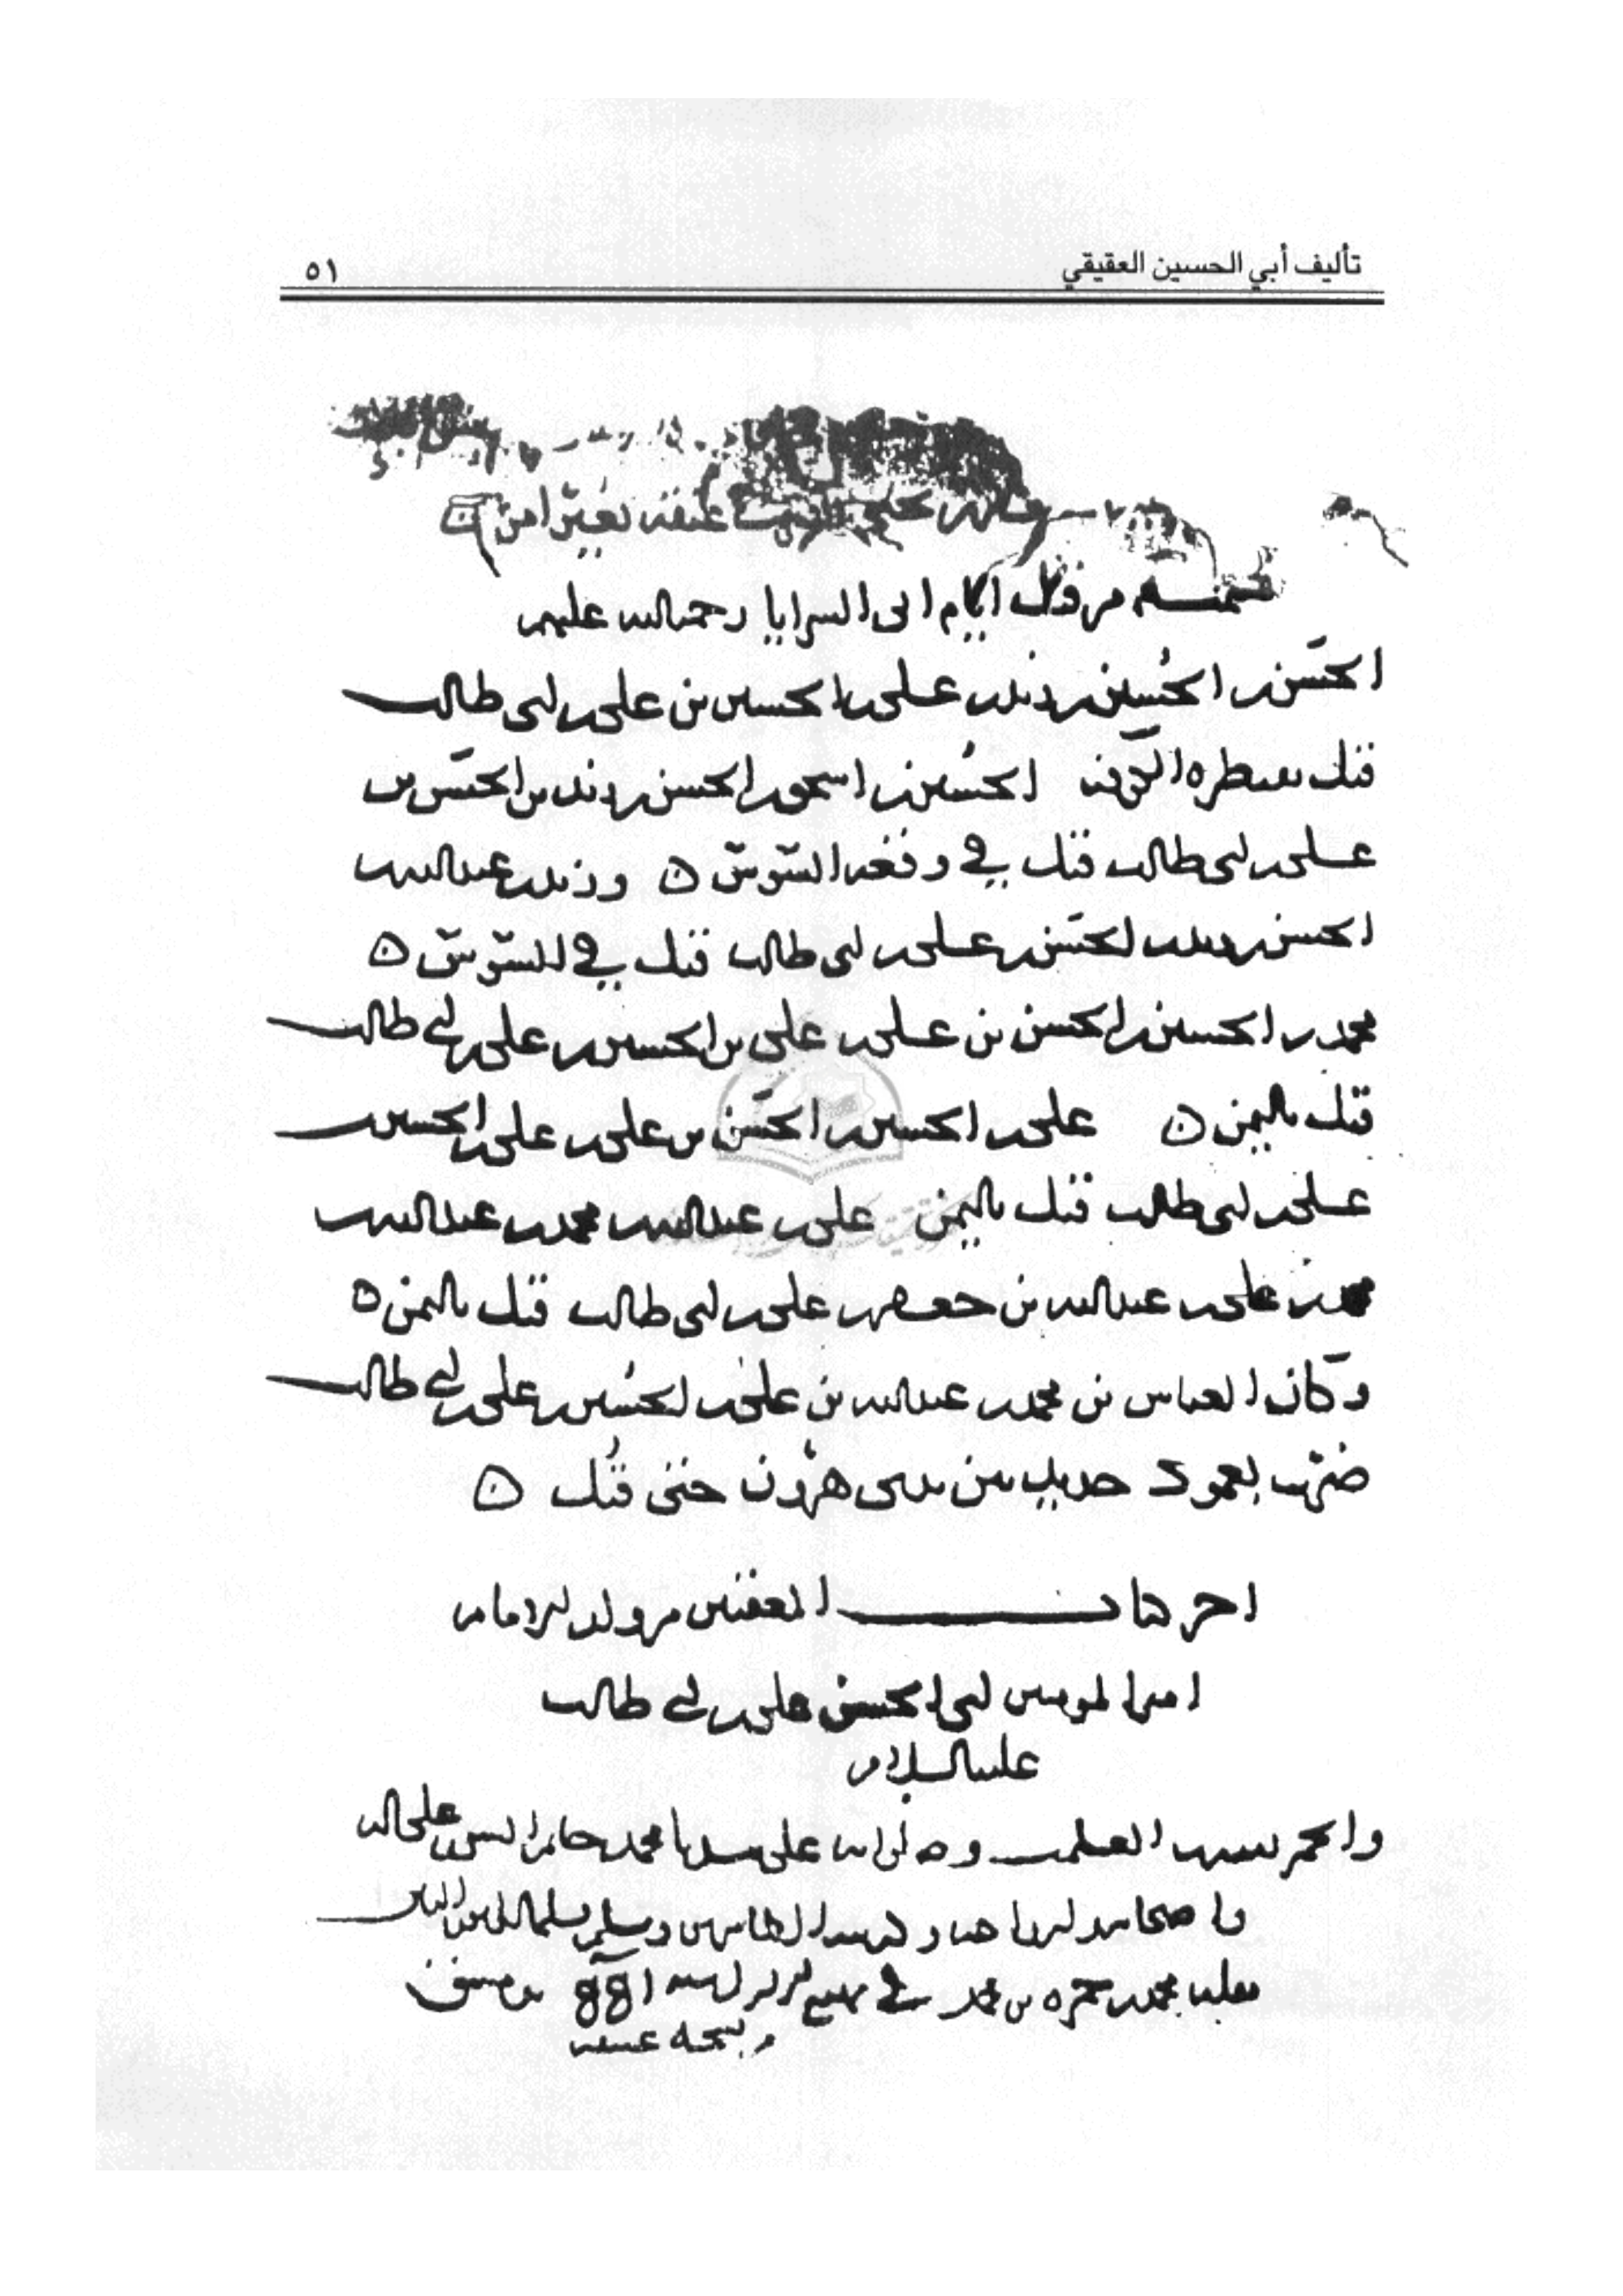 تأليف أبي الحسين العقيقي
٥١
تسمية من قتل ايام ابى السرايا رحمة الله عليهم
الحسن بن الحسين بن زيد بن علي بن الحسين بن علي بن ابى طالب
قتل بقنطرة الكوفة الحسين بن اسحق بن الحسن بن زيد بن الحسن بن
علي بن ابى طالب قتل في وقعة السوس ٥ وزيد بن عبد الله بن
الحسن بن زيد بن الحسن بن علي بن ابى طالب قتل في السوس ٥
محمد بن الحسين بن الحسن بن علي بن علي بن الحسين بن علي بن ابي طالب
قتل باليمن ٥ علي بن الحسين بن الحسن بن علي بن علي بن الحسين بن
علي بن ابى طالب قتل باليمن علي بن عبد الله بن محمد بن عبد الله بن
محمد بن علي بن عبد الله بن جعفر بن علي بن ابى طالب قتل باليمن ٥
وكان العباس بن محمد بن عبد الله بن علي بن الحسين بن علي بن ابي طالب
ضرب بعمود حديد بين يدى هرون حتى قتل ٥
اخر كتاب المعقبين من ولد الامام
امير المومنين ابى الحسن علي بن ابي طالب
عليه السلام
والحمد لله العلمين وصلى الله على سيدنا محمد خاتم النبيين وعلى اله
واصحابه الطاهرين وسلم تسليما الى يوم الدين
محمد بن حمزه بن محمد في بدمشق